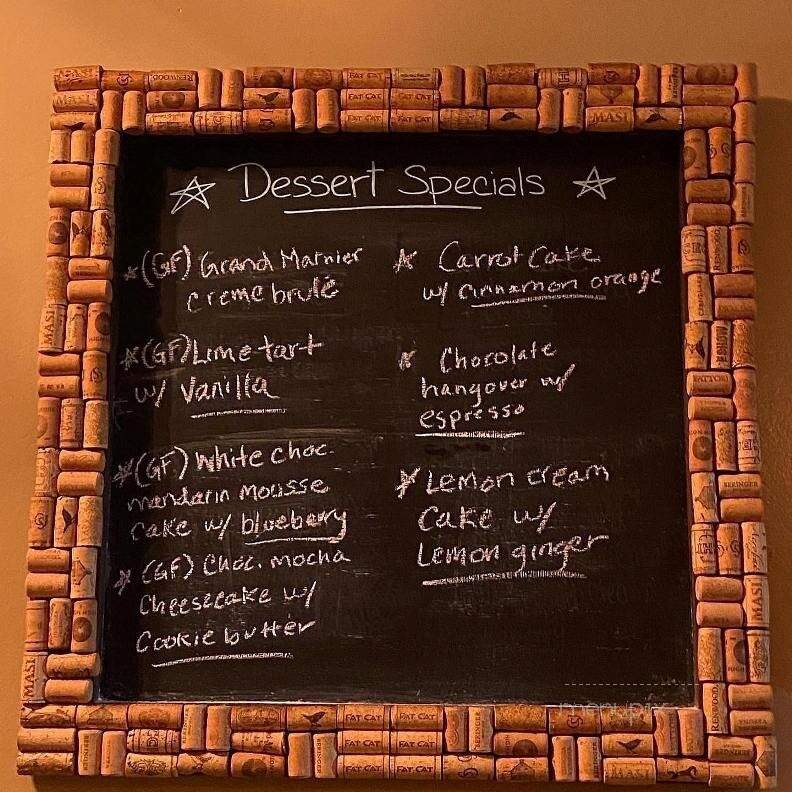 Dessert Specials
(GF) Grand Marnier
creme brulé
(GF) Lime tart
w/ Vanilla
(GF) White choc.
mandarin mousse
cake w/ blueberry
(GF) Choc. mocha
Cheesecake w/
Cookie butter
Carrot Cake
w/ cinnamon orange
Chocolate
hangover w/
espresso
Lemon cream
Cake w/
Lemon ginger
menupix
FAT CAT
FAT CAT
FAT CAT
FAT CAT
FAT CAT
FAT CAT
MASI
MASI
MASI
MASI
REDWOOD
BERINGER